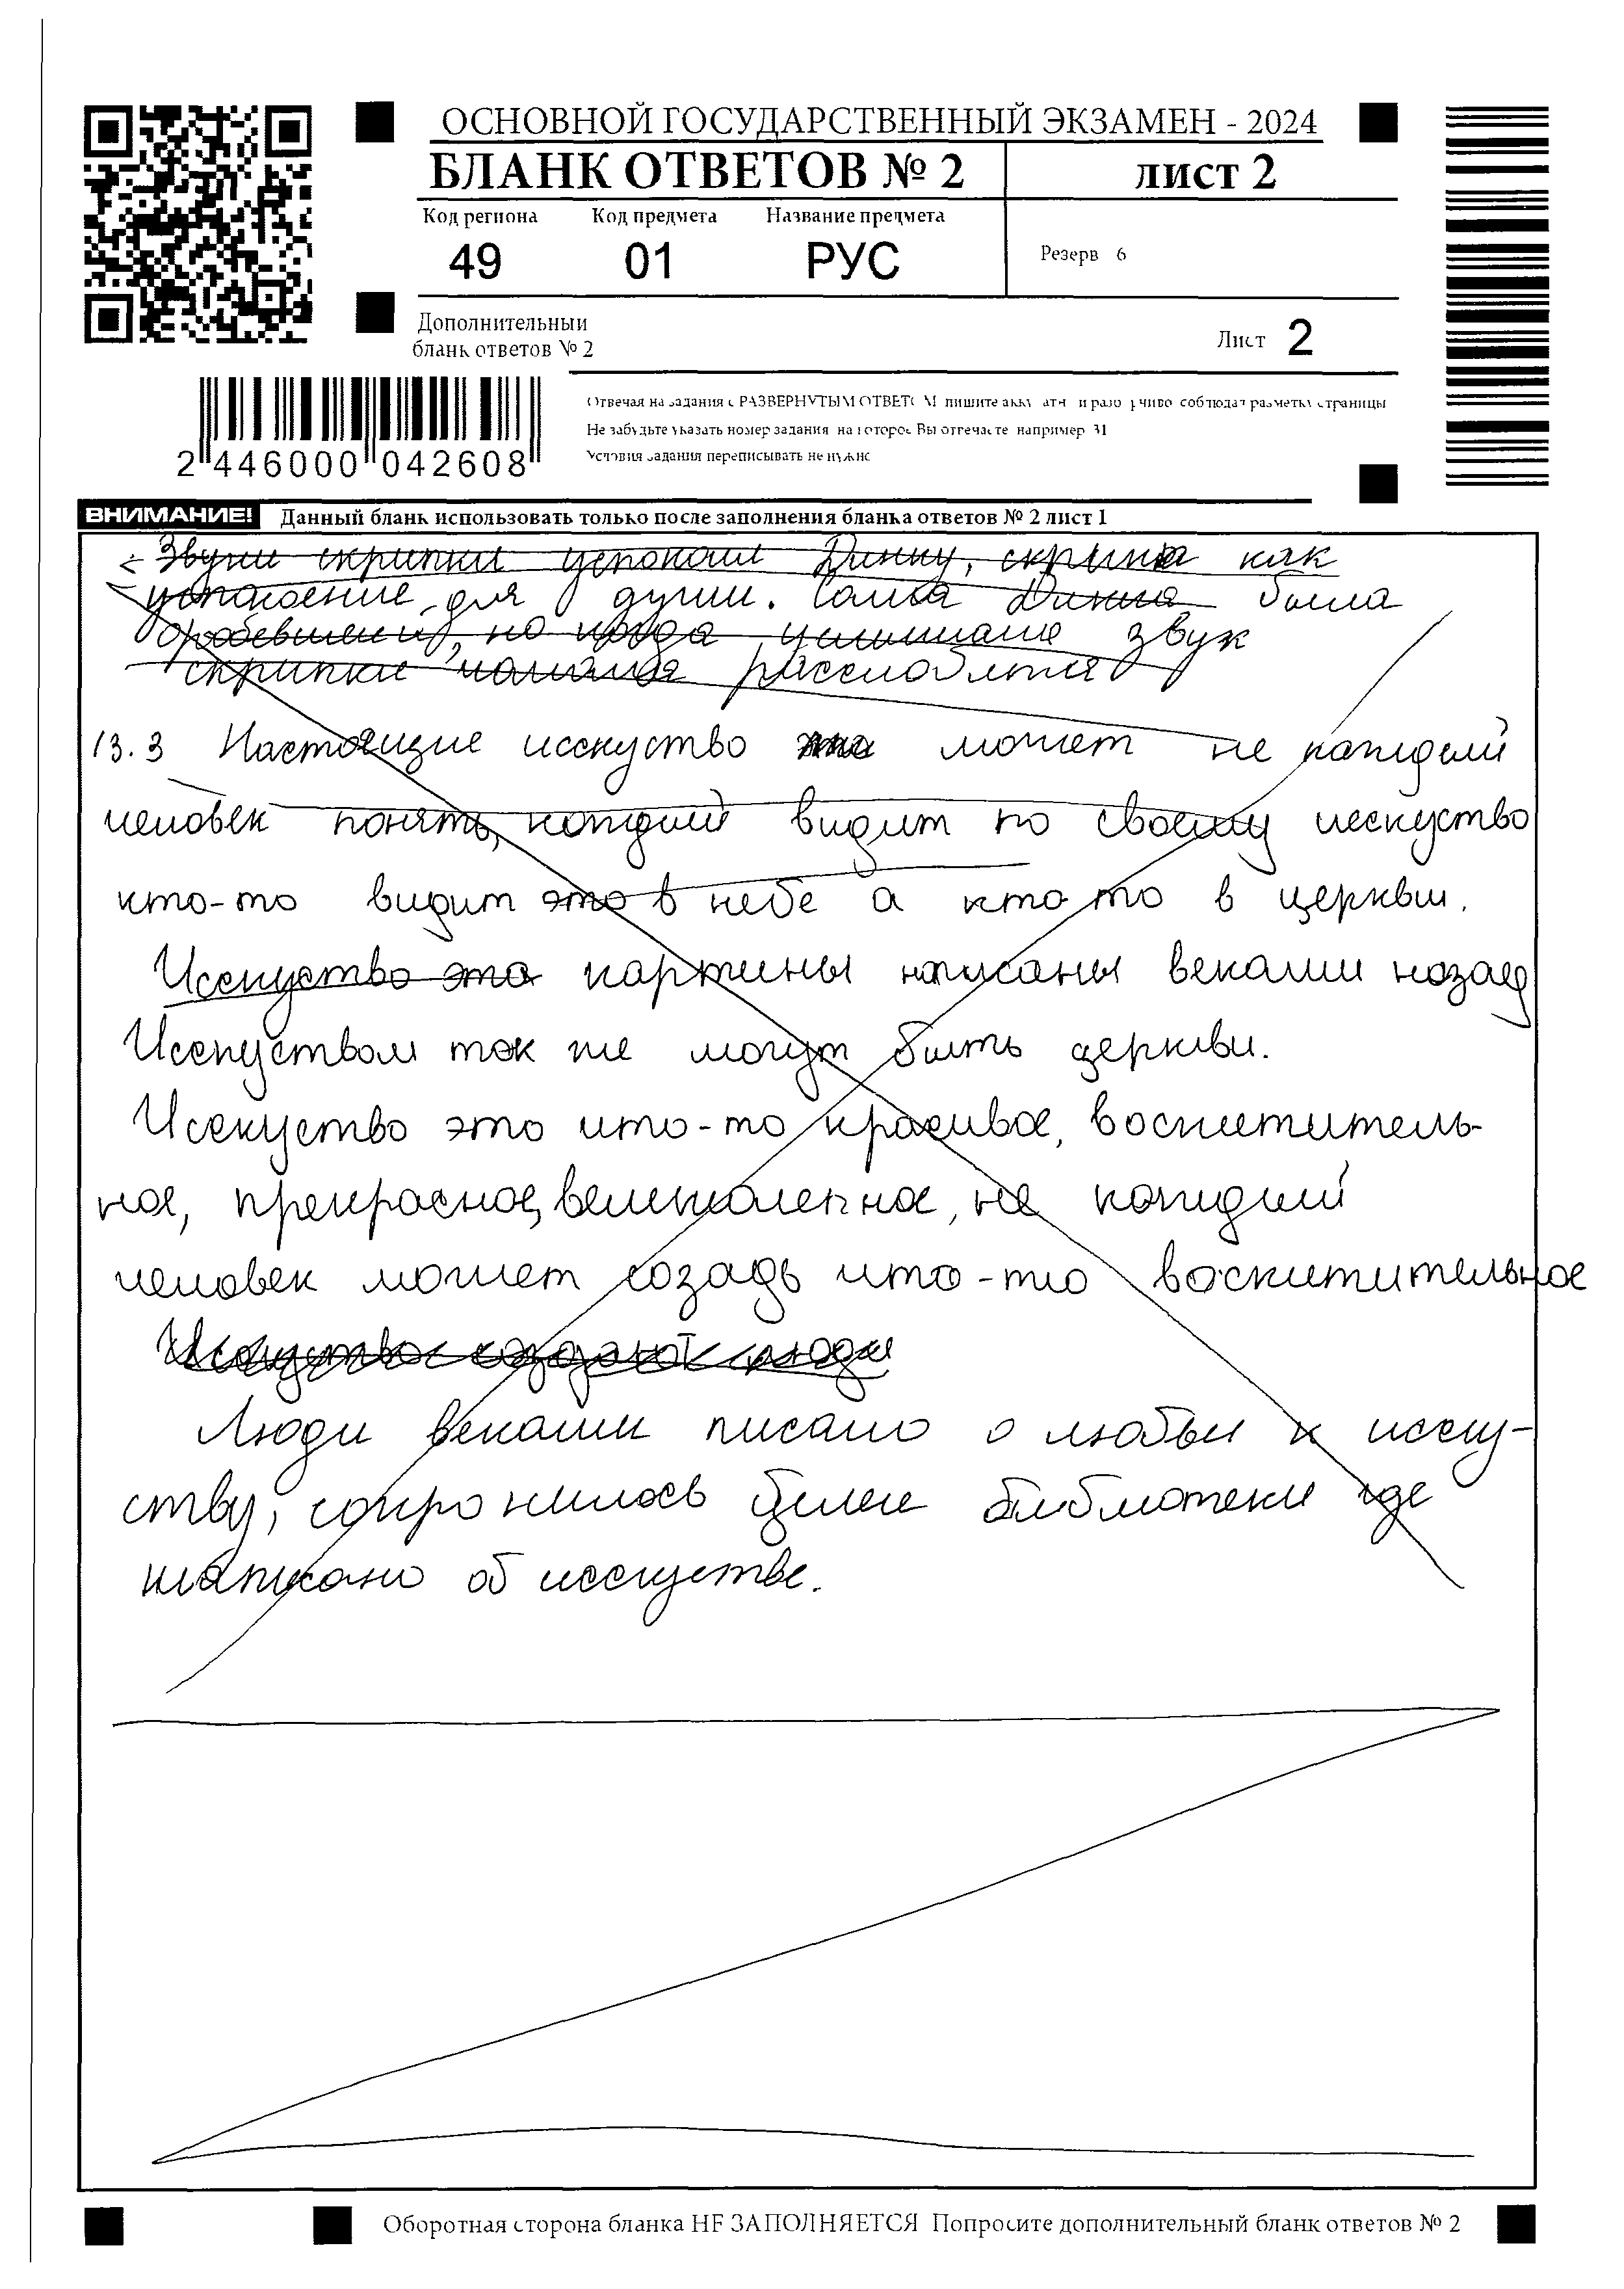 ОСНОВНОЙ ГОСУДАРСТВЕННЫЙ ЭКЗАМЕН - 2024
БЛАНК ОТВЕТОВ № 2 лист 2
Код региона Код предмета Название предмета
49 01 РУС
Резерв 6
Дополнительный
бланк ответов № 2
Лист 2
Отвечая на задания с РАЗВЕРНУТЫМ ОТВЕТОМ пишите и разборчиво соблюдая разметку страницы
Не забудьте указать номер задания на которое Вы отвечаете например 31
Условия задания переписывать не нужно
2 446000 042608
ВНИМАНИЕ! Данный бланк использовать только после заполнения бланка ответов № 2 лист 1
Звуки скрипки успокоил Динку, скрипка как
успокоение для души. Сама Динка была
но когда услышала звук
скрипки начала расслоблятся
13.3 Настоящие исскуство может не каждый
человек понять, каждый видит по своему исскуство
кто-то видит это в небе а кто то в церквы.
Исскуство это картины написаны веками назад
Исскуством так же могут быть церкьви.
Исскуство это что-то красивое, восхитетитель-
ное, прекрасное, великолепное, не каждый
человек может создадь что-то восхитительное
Искуство создают люди
Люди веками писали о любви к исску-
ству, сохронилось целые библиотеки где
написано об исскустве.
Оборотная сторона бланка НЕ ЗАПОЛНЯЕТСЯ Попросите дополнительный бланк ответов № 2